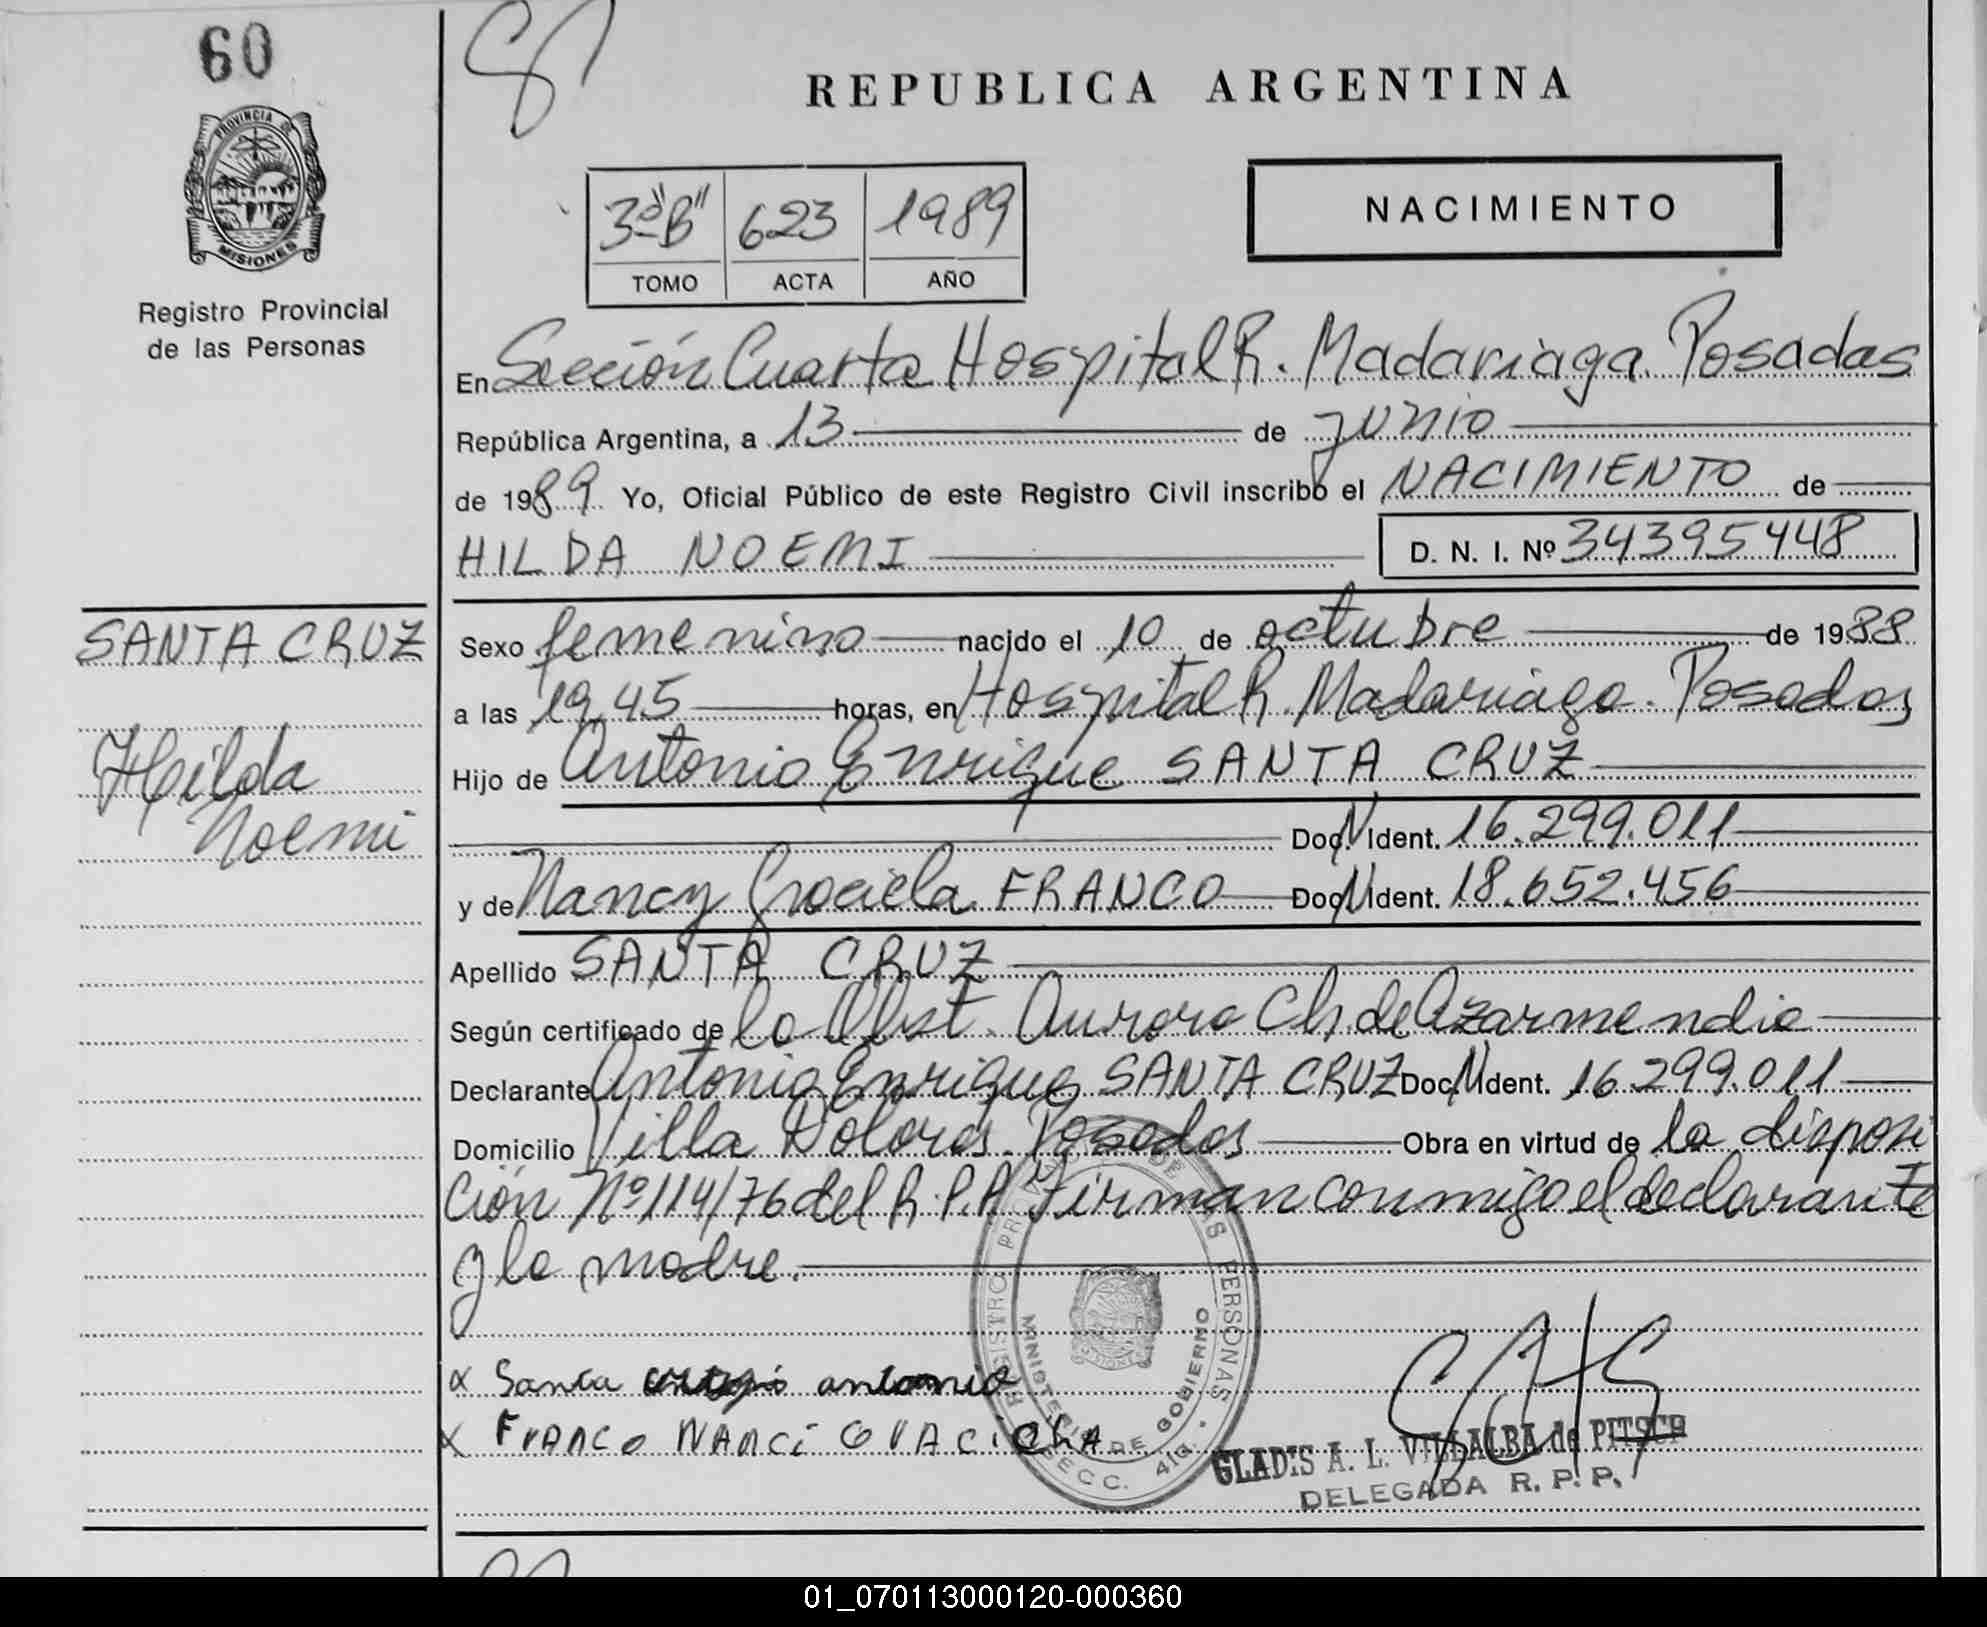 60
PROVINCIA DE
MISIONES
Registro Provincial
de las Personas
REPUBLICA ARGENTINA
3º"B" 623 1989
TOMO ACTA AÑO
NACIMIENTO
En Sección Cuarta Hospital R. Madariaga. Posadas
República Argentina, a 13 de junio
de 1989. Yo, Oficial Público de este Registro Civil inscribo el NACIMIENTO de
HILDA NOEMI D. N. I. Nº 34395448
SANTA CRUZ
Hilda
Noemi
Sexo femenino nacido el 10 de octubre de 1988
a las 19,45 horas, en Hospital R. Madariaga. Posadas
Hijo de Antonio Enrique SANTA CRUZ
Doc. N Ident. 16.299.011
y de Nancy Graciela FRANCO Doc. N Ident. 18.652.456
Apellido SANTA CRUZ
Según certificado de la Obst. Aurora Ch. de Azarmendia
Declarante Antonio Enrique SANTA CRUZ Doc. N Ident. 16.299.011
Domicilio Villa Dolores. Posadas Obra en virtud de la disposi
ción Nº 114/76 del R.P.P. Firman conmigo el declarante
y la madre.
x Santa antonio
x Franco NANCi GVACiElA
REGISTRO PROVINCIAL DE LAS PERSONAS
MINISTERIO DE GOBIERNO
SECC. 4ta.
GLADIS A. L. VILLALBA de PITSCH
DELEGADA R. P. P.
01_070113000120-000360